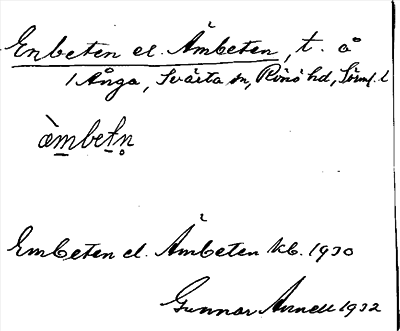 Enbeten el. Ämbeten, t. å
1 Ånga, Svärta sn, Rönö hd, Sörml. l
àmbetn̥
Embeten el. Ämbeten kb. 1930
Gunnar Arnell 1932